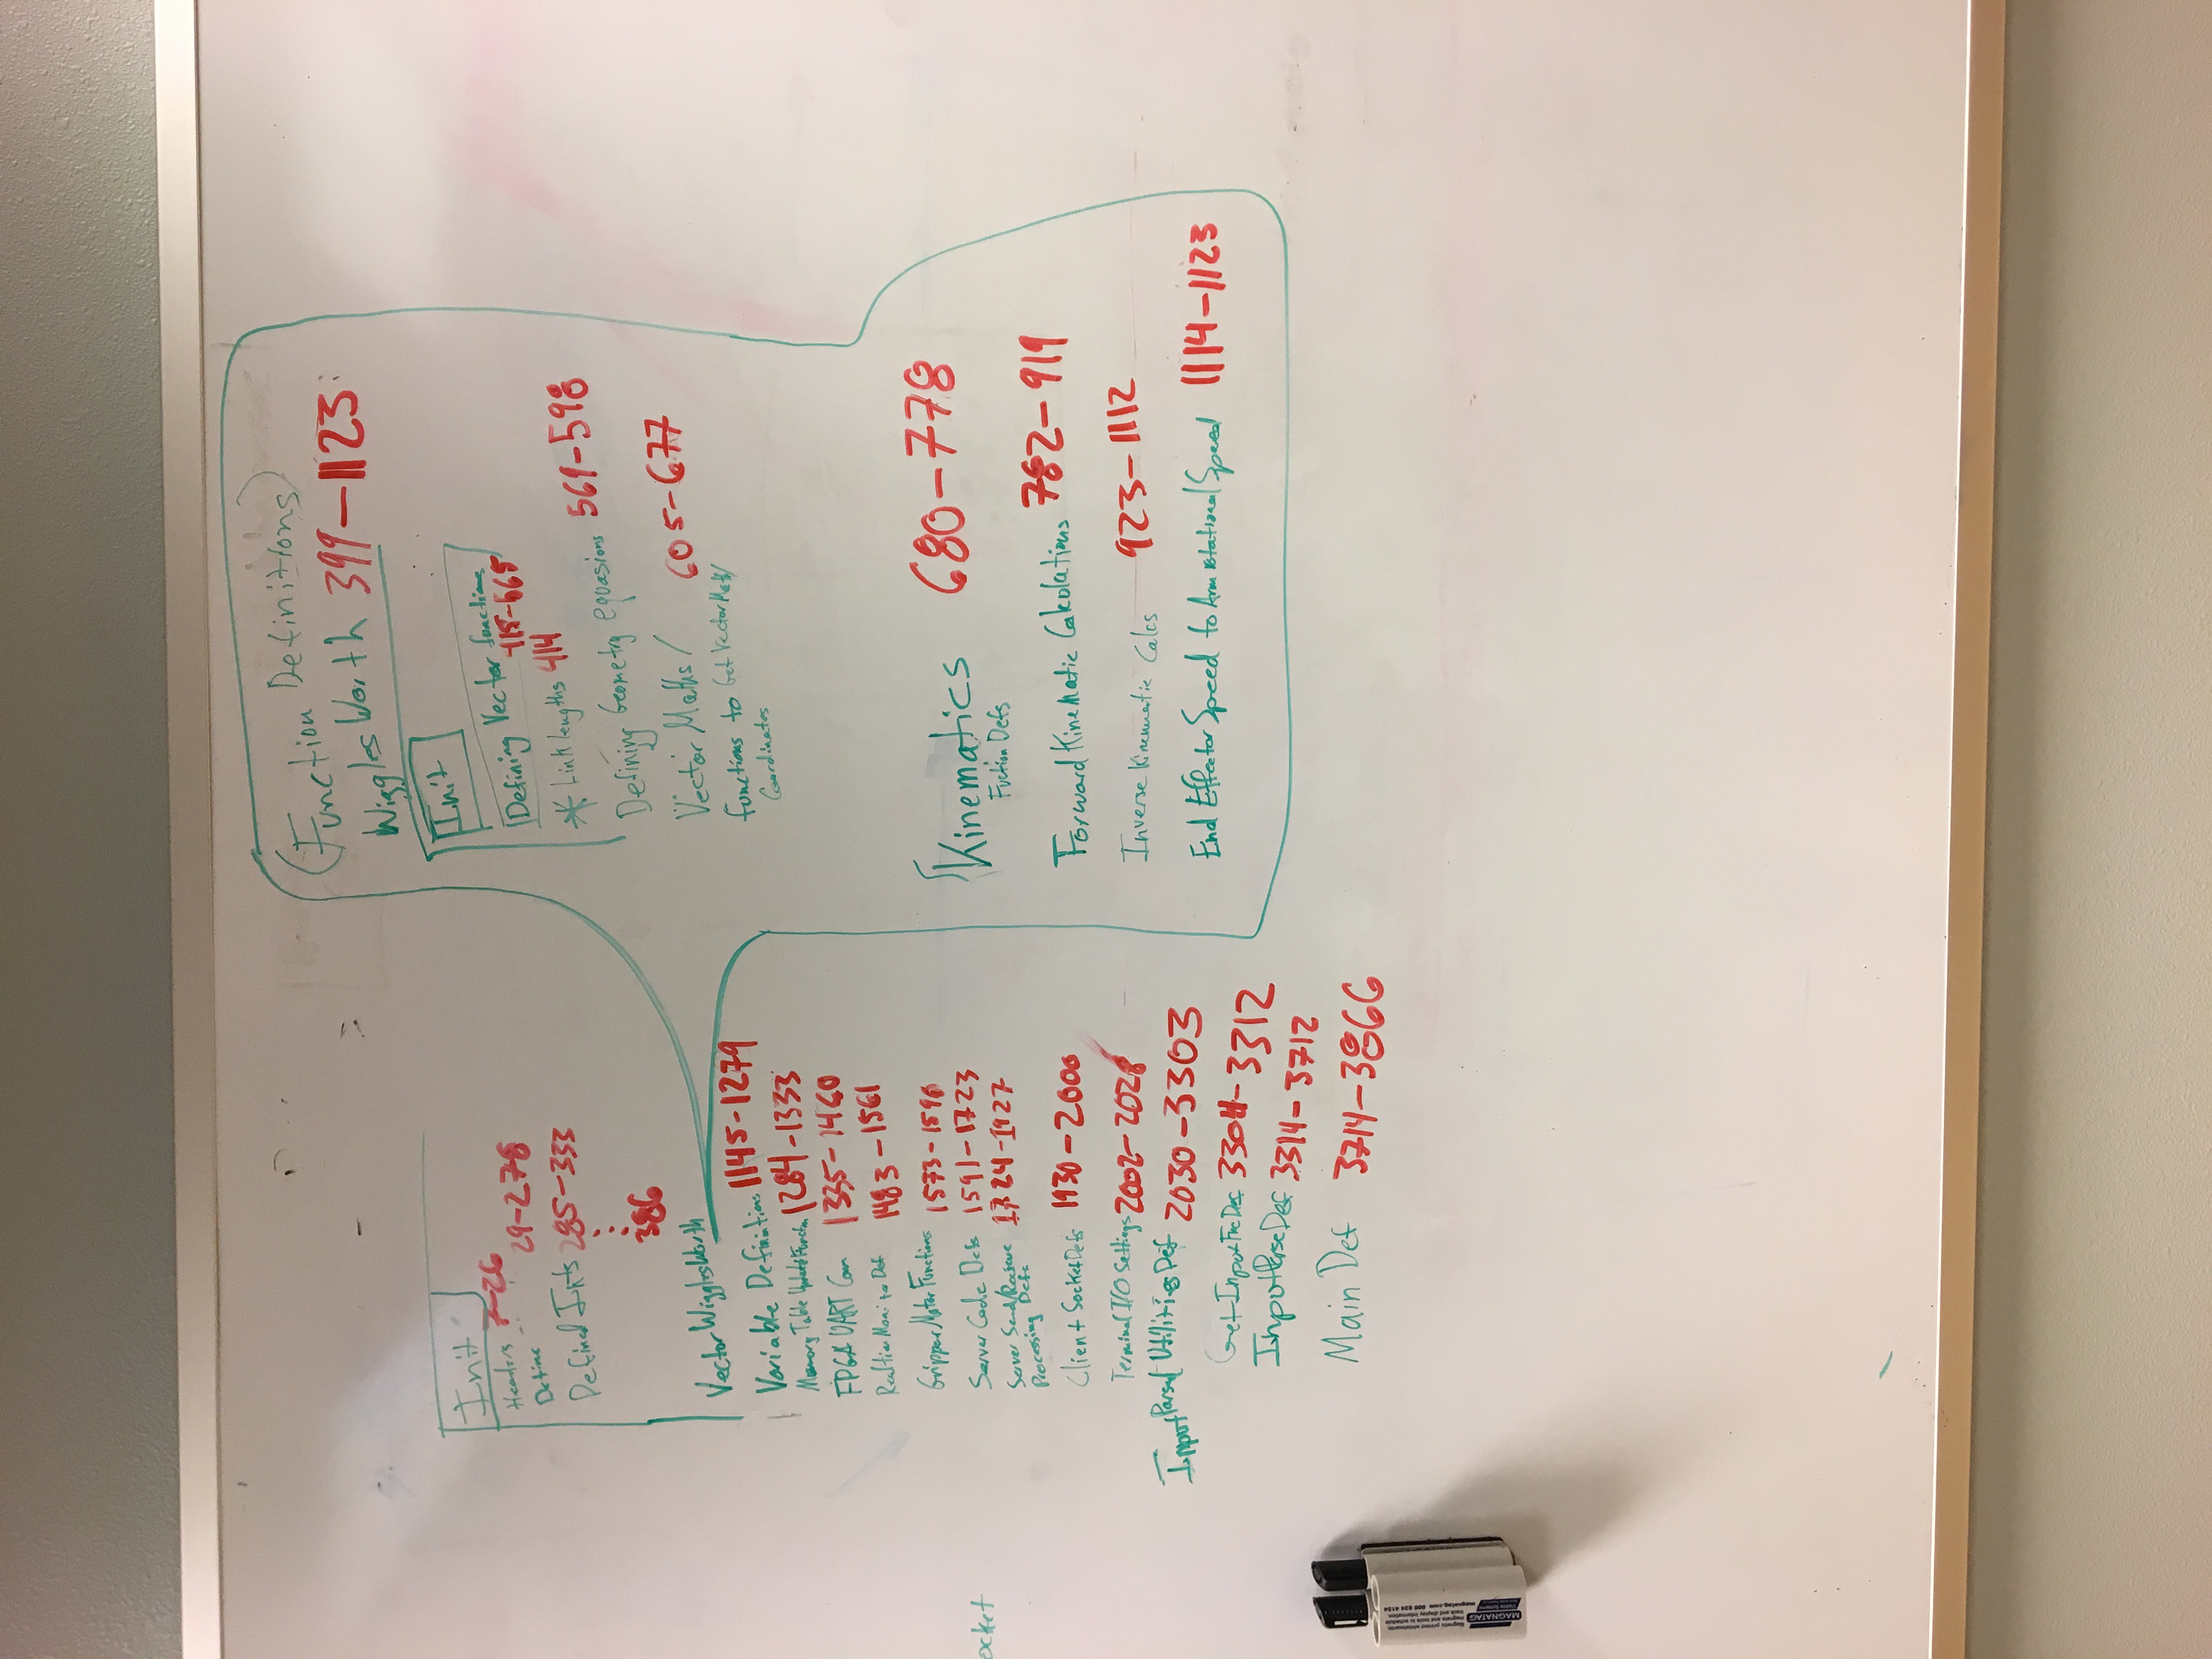 Init
Headers 7-26
Define 29-278
Defined Ints 285-333
386
Vector WigglesWorth
Variable Definitions 1145-1279
Memory Table Update Functn 1284-1333
FPGA UART Com 1335-1460
1483-1561
Gripper Motor Functions 1573-1590
Server Code Defs 1591-1723
Server Send/Recieve 1724-1927
Processing Defs
Client Socket Defs 1930-2000
Terminal I/O Settings 2002-2028
Input Parsel Utilities Def 2030-3303
Get Input Fnc Def 3304-3312
Input Parse Def 3314-3712
Main Def 3714-3866
ocket
(Function Definitions)
WigglesWorth 399-1123
Init
Defining Vector functions
415-565
* Link lengths 414
Defining Geometry equasions 569-598
Vector Maths/ 605-677
functions to Get Vector Math/
Coordinates
Kinematics 680-778
Fuction Defs
Forward Kinematic Calculations 782-919
Inverse Kinematic Calcs 923-1112
End Effector Speed to Arm rotational Speed 1114-1123
MAGNATAG
magnatag.com 800 624 4154